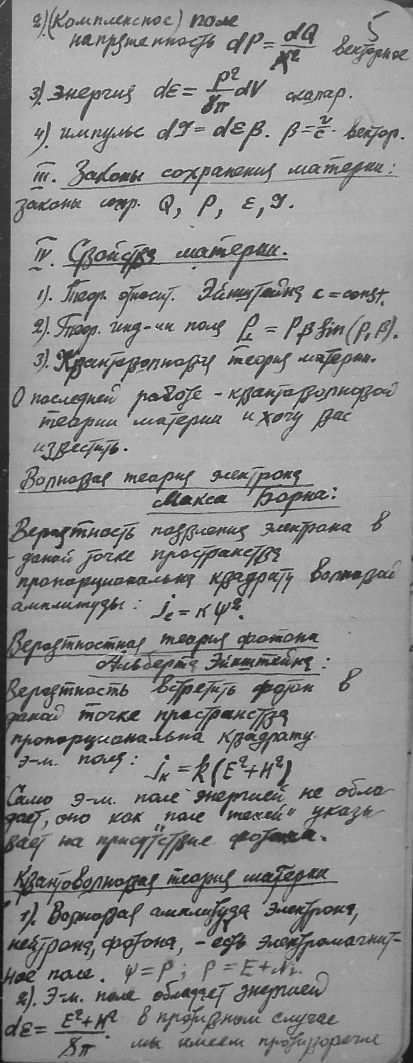 2) (Комплексное) поле 5
напряженность dP = dQ/X² векторное
3). Энергия dε = P²/8π dV скаляр.
4). импульс dJ = dεβ. β = v/c. вектор.
III. Законы сохранения материи:
законы сохр. Q, P, ε, J.
IV Свойства материи.
1). Теор. относит. Эйнштейна c = const.
2). Теор. инд-ии поля P⊥ = Pβ Sin(P,β).
3). Квантоволновая теория материи.
О последней работе - квантоволновой
теории материи и хочу вас
известить.
Волновая теория электрона
Макса Борна:
Вероятность появления электрона в
данной точке пространства
пропорциональна квадрату волновой
амплитуды: jₑ = кψ².
Вероятностная теория фотона
Альберта Эйнштейна:
Вероятность встретить фотон в
даной точке пространства
пропорциональна квадрату
э-м. поля: jₖ = k(E²+H²)
Само э-м. поле энергией не обла-
дает, оно как поле "теней" указы-
вает на присутствие фотона.
Квантоволновая теория материи
1). Волновая амплитуда электрона,
нейтрона, фотона, - есть электромагнит-
ное поле. ψ = P; P = E +
2). Э-м. поле обладает энергией
dε = E²+H²/8π в противном случае
мы имеем противоречие